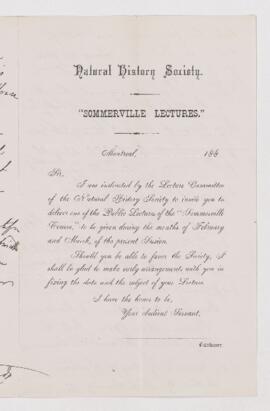 Natural History Society.
"SOMMERVILLE LECTURES."
Montreal, 186
Sir,
I am instructed by the Lecture Committee
of the Natural History Society to invite you to
deliver one of the Public Lectures of the "Sommerville
Course," to be given during the months of February
and March, of the present Season.
Should you be able to favor the Society, I
shall be glad to make early arrangements with you in
fixing the date and the subject of your Lecture.
I have the honor to be,
Your obedient Servant,
Chairman.